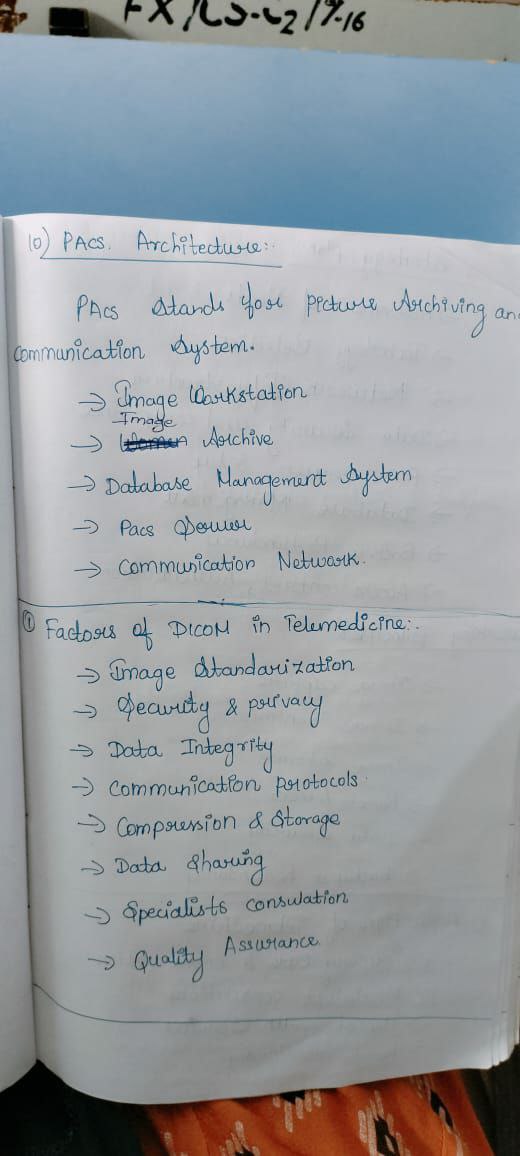 10) PACS. Architecture:-
PACS stands for picture Archiving an
communication system.
→ Image Workstation
Image
→ Archive
→ Database Management System
→ Pacs Server
→ Communication Network.
① Factors of DICOM in Telemedicine:-
→ Image Standarization
→ Security & privacy
→ Data Integrity
→ Communication protocols
→ Compression & Storage
→ Data Sharing
→ Specialists consulation
→ Quality Assurance